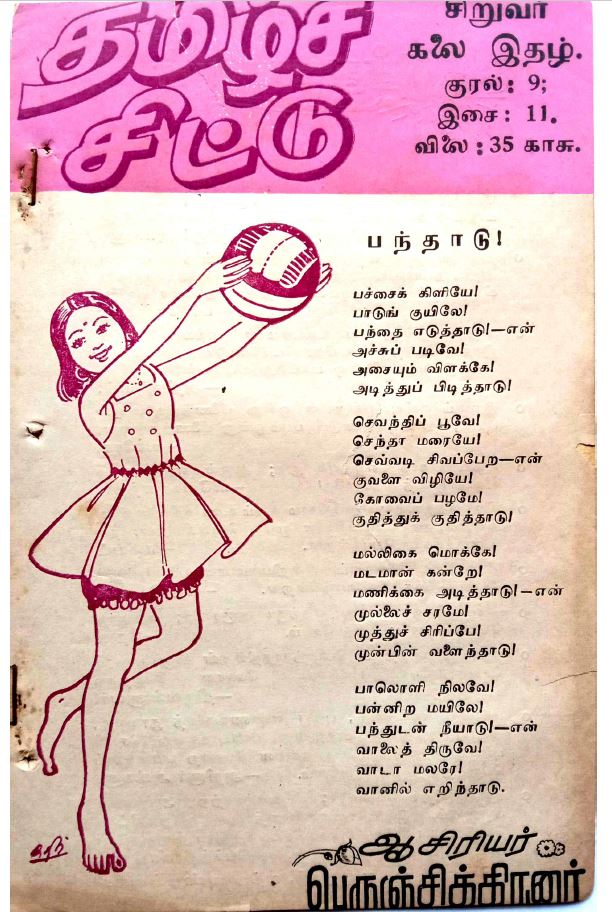 தமிழ்ச்
சிட்டு
சிறுவர்
கலை இதழ்.
குரல்: 9;
இசை: 11.
விலை: 35 காசு.
பந்தாடு!
பச்சைக் கிளியே!
பாடுங் குயிலே!
பந்தை எடுத்தாடு!—என்
அச்சுப் படிவே!
அசையும் விளக்கே!
அடித்துப் பிடித்தாடு!
செவந்திப் பூவே!
செந்தா மரையே!
செவ்வடி சிவப்பேற—என்
குவளை விழியே!
கோவைப் பழமே!
குதித்துக் குதித்தாடு!
மல்லிகை மொக்கே!
மடமான் கன்றே!
மணிக்கை அடித்தாடு!—என்
முல்லைச் சரமே!
முத்துச் சிரிப்பே!
முன்பின் வளைந்தாடு!
பாலொளி நிலவே!
பன்னிற மயிலே!
பந்துடன் நீயாடு!—என்
வாலைத் திருவே!
வாடா மலரே!
வானில் எறிந்தாடு.
ஆசிரியர்
பெருஞ்சித்திரனார்